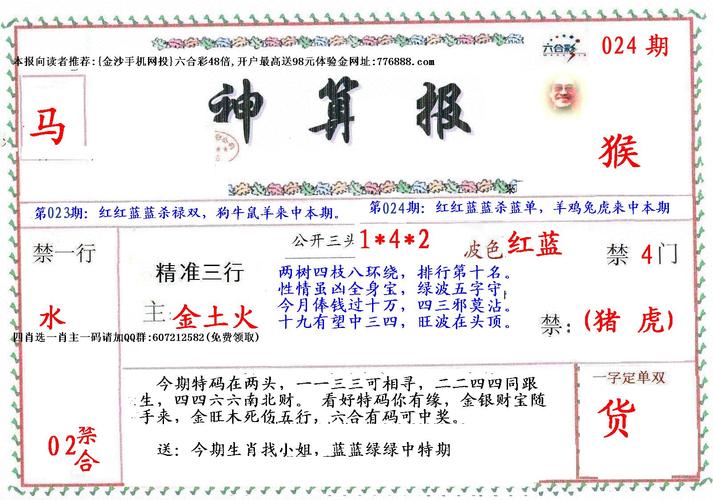 六合彩
024 期
本报向读者推荐:{金沙手机网投}六合彩48倍,开户最高送98元体验金网址:776888.com
马
神算报
猴
第023期：红红蓝蓝杀禄双，狗牛鼠羊来中本期。
第024期：红红蓝蓝杀蓝单，羊鸡兔虎来中本期
禁一行
水
精准三行
主:金土火
公开三头1*4*2
波色 红蓝
禁 4门
禁:(猪 虎)
两树四枝八环绕，排行第十名。
性情虽凶全身宝，绿波五字守。
今月俸钱过十万，四三邪莫沾。
十九有望中三四，旺波在头顶。
四肖选一肖主一码请加QQ群:607212582(免费领取)
02禁合
今期特码在两头，一一三三可相寻，二二四四同跟
生，四四六六南北财。 看好特码你有缘，金银财宝随
手来，金旺木死伤五行，六合有码可中奖。
送：今期生肖找小姐，蓝蓝绿绿中特期
一字定单双
货